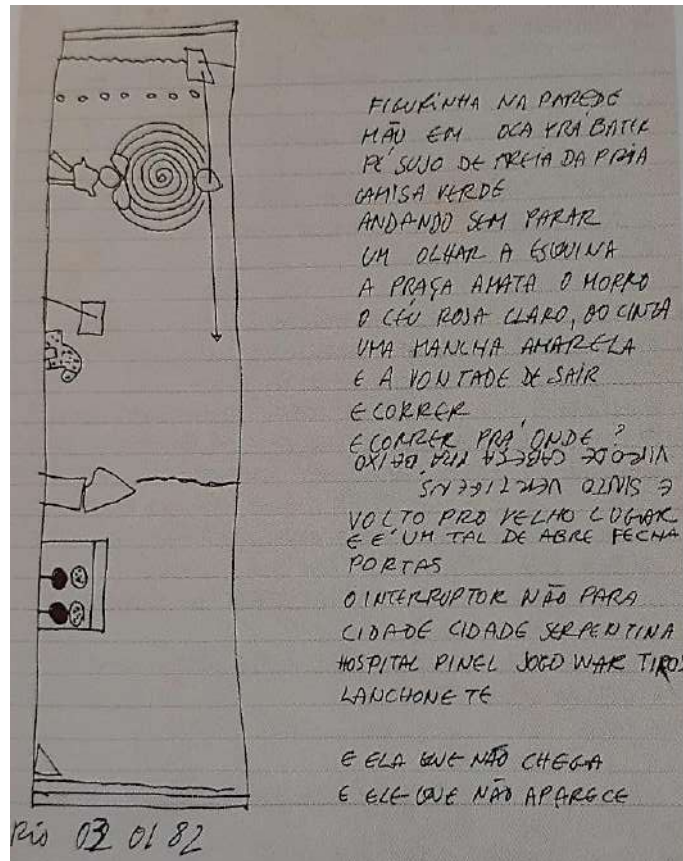 FIGURINHA NA PAREDE
MÃO EM OCA PRA BATER
PÉ SUJO DE AREIA DA PRAIA
CAMISA VERDE
ANDANDO SEM PARAR
UM OLHAR A ESQUINA
A PRAÇA AMATA O MORRO
O CÉU ROSA CLARO, OO CINZA
UMA MANCHA AMARELA
E A VONTADE DE SAIR
E CORRER
E CORRER PRA' ONDE ?
VIRO DE CABEÇA PRA BAIXO
E SINTO VERTIGENS
VOLTO PRO VELHO LUGAR
E E' UM TAL DE ABRE FECHA
PORTAS
O INTERRUPTOR NÃO PARA
CIDADE CIDADE SERPENTINA
HOSPITAL PINEL JOGO WAR TIROS
LANCHONETE
E ELA QUE NÃO CHEGA
E ELE QUE NÃO APARECE
Rio 03 01 82